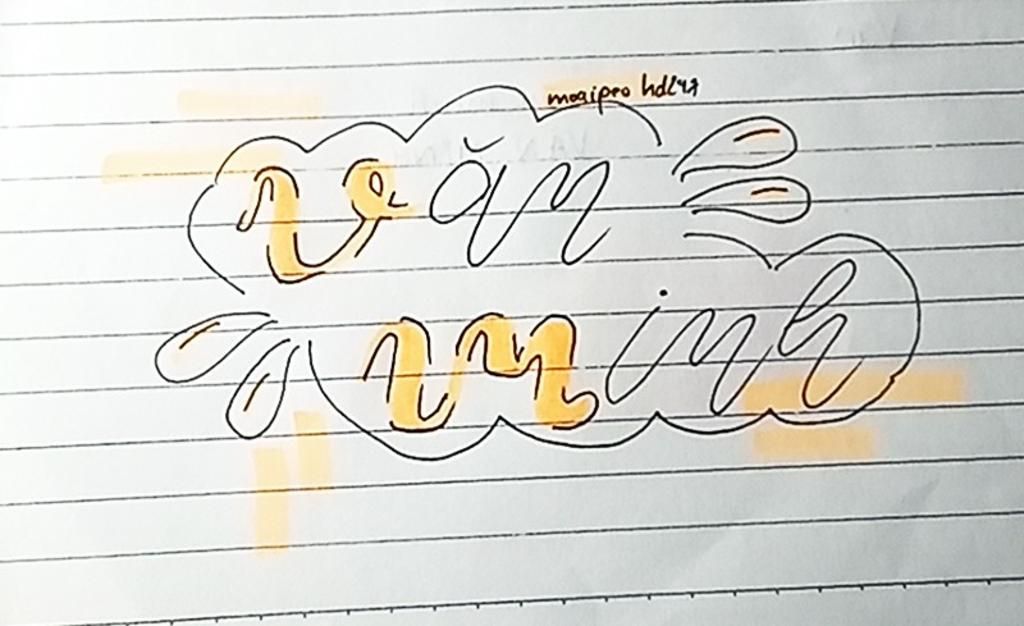 moaipro hdl47
Văn
Minh